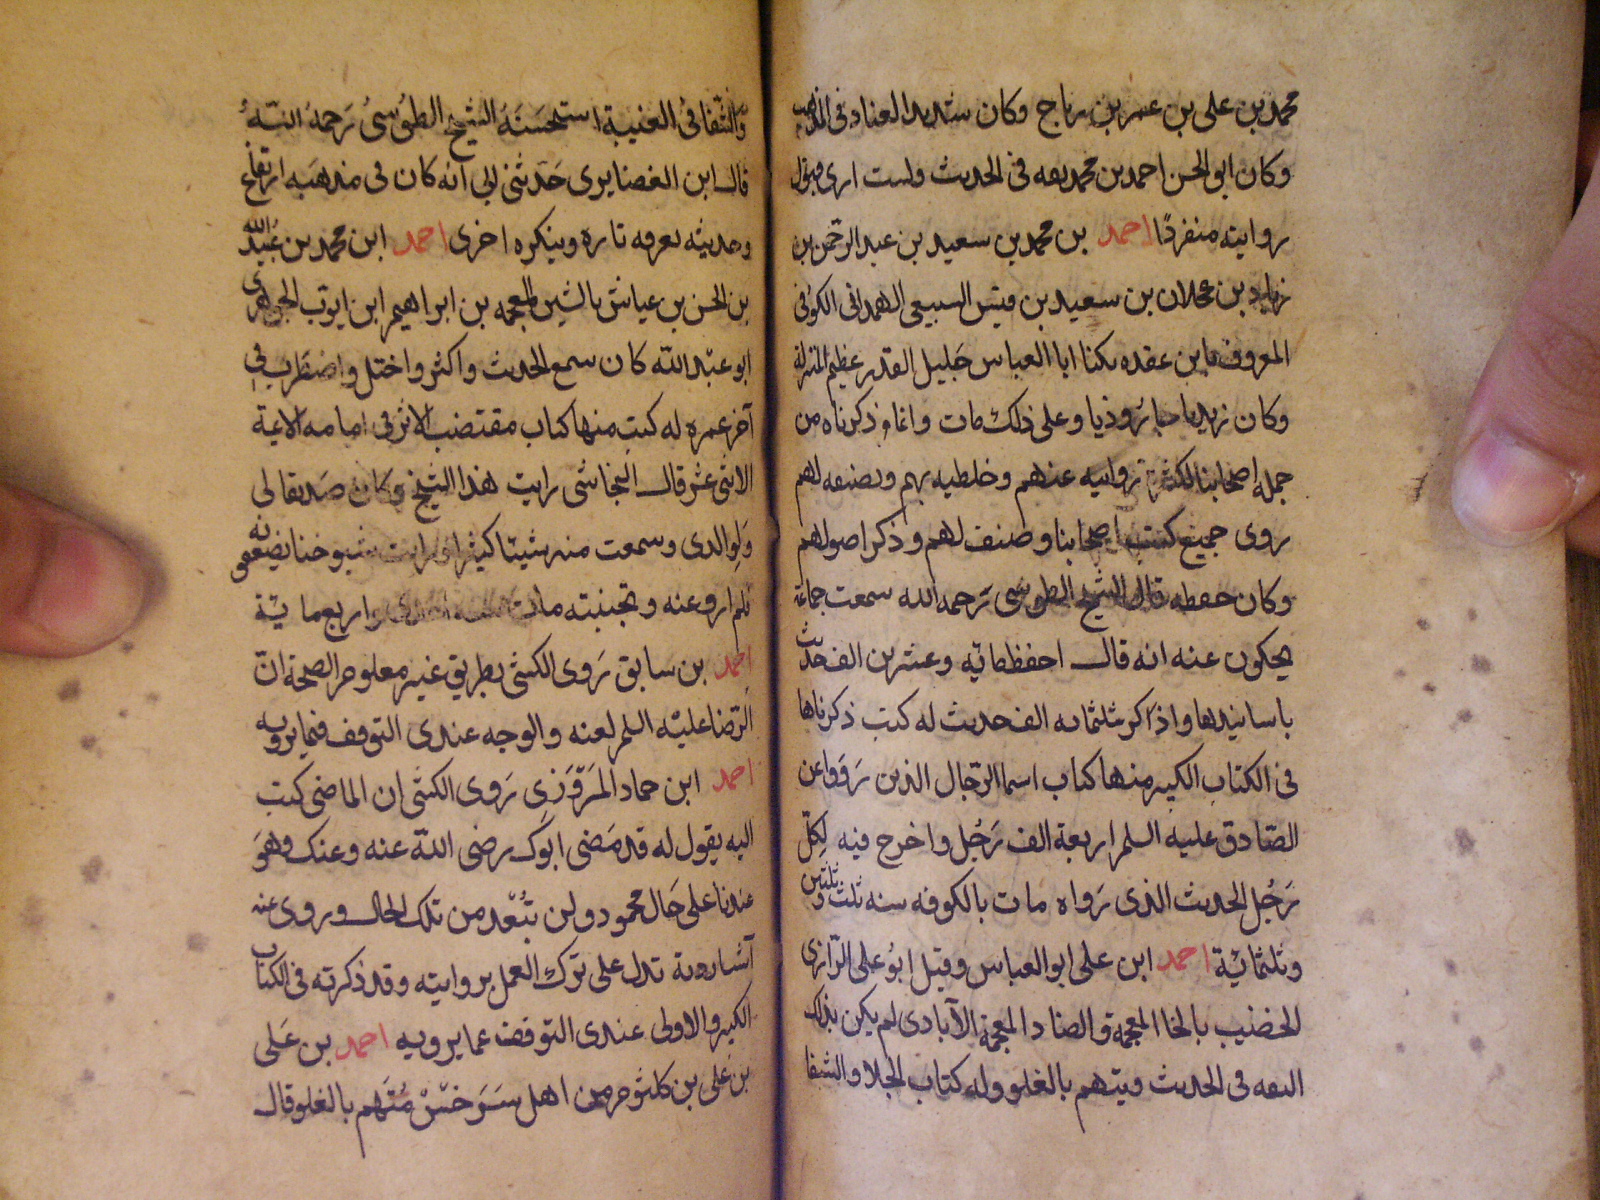 محمد بن على بن عمر بن رباح وكان شديد العناد فى المذهب
وكان ابو الحسن احمد بن محمد ثقه فى الحديث ولست ارى قبول
روايته منفردًا احمد بن محمد بن سعيد بن عبد الرحمن بن
زياد بن عجلان بن سعيد بن قيس السبيعى الهمدانى الكوفى
المعروف بابن عقده يكنا ابا العباس جليل القدر عظيم المنزلة
وكان زيديا جاروذيا وعلى ذلك مات وانما ذكرناه من
جملة اصحابنا لكثرة روايته عنهم وخلطته بهم وتصنيفه لهم
روى جميع كتب اصحابنا وصنف لهم وذكر اصولهم
وكان حفظه قال الشيخ الطوسى رحمه الله سمعت جماعة
يحكون عنه انه قال احفظ مائه وعشرين الف حديث
باسانيدها واذاكر بثلثمائه الف حديث له كتب ذكرناها
فى الكتاب الكبير منها كتاب اسما الرجال الذين رووا عن
الصادق عليه السلم اربعة الف رجل واخرج فيه لكل
رجل الحديث الذى رواه مات بالكوفه سنه ثلث وثلثين
وثلثمائية احمد ابن على ابو العباس وقيل ابو على الرازى
الخضيب بالخا المعجمة والضاد المعجمة الآبادى لم يكن بذلك
الثقه فى الحديث ويتهم بالغلو وله كتاب الجلا والشفا
والشفا فى الغيبة استحسنه الشيخ الطوسى رحمه الله
قال ابن الغضايرى حدثنى ابى انه كان فى مذهبه ارتفاع
وحديثه نعرفه تارة وينكره اخرى احمد ابن محمد بن عبيد الله
بن الحسن بن عياش بالشين المعجمه بن ابراهيم ابن ايوب الجوهرى
ابو عبد الله كان سمع الحديث واكثر واختل واضطرب فى
آخر عمره له كتب منها كتاب مقتضب الاثر فى امامه الائمة
الاثنى عشر قال النجاشى رايت هذا الشيخ وكان صديقا لى
ولوالدى وسمعت منه شيئا كثيرا ورايت شيوخنا يضعفونه
فلم ارو عنه وتجنبته مات سنة احدى واربعمائية
احمد بن سابق روى الكشى بطريق غير معلوم الصحة ان
الرضا عليه السلم لعنه والوجه عندى التوقف فيما يرويه
احمد ابن حماد المروزى روى الكشى ان الماضى كتب
اليه يقول له قد مضى ابوك رضى الله عنه وعنك وهو
عندنا على حال محمود ولن تبعد من تلك الحال وروى عنه
آشياء ردية تدل على ترك العمل بروايته وقد ذكرته فى الكتاب
الكبير والاولى عندى التوقف عما يرويه احمد بن على
بن على بن كلثوم من اهل سرخس متهم بالغلو قال